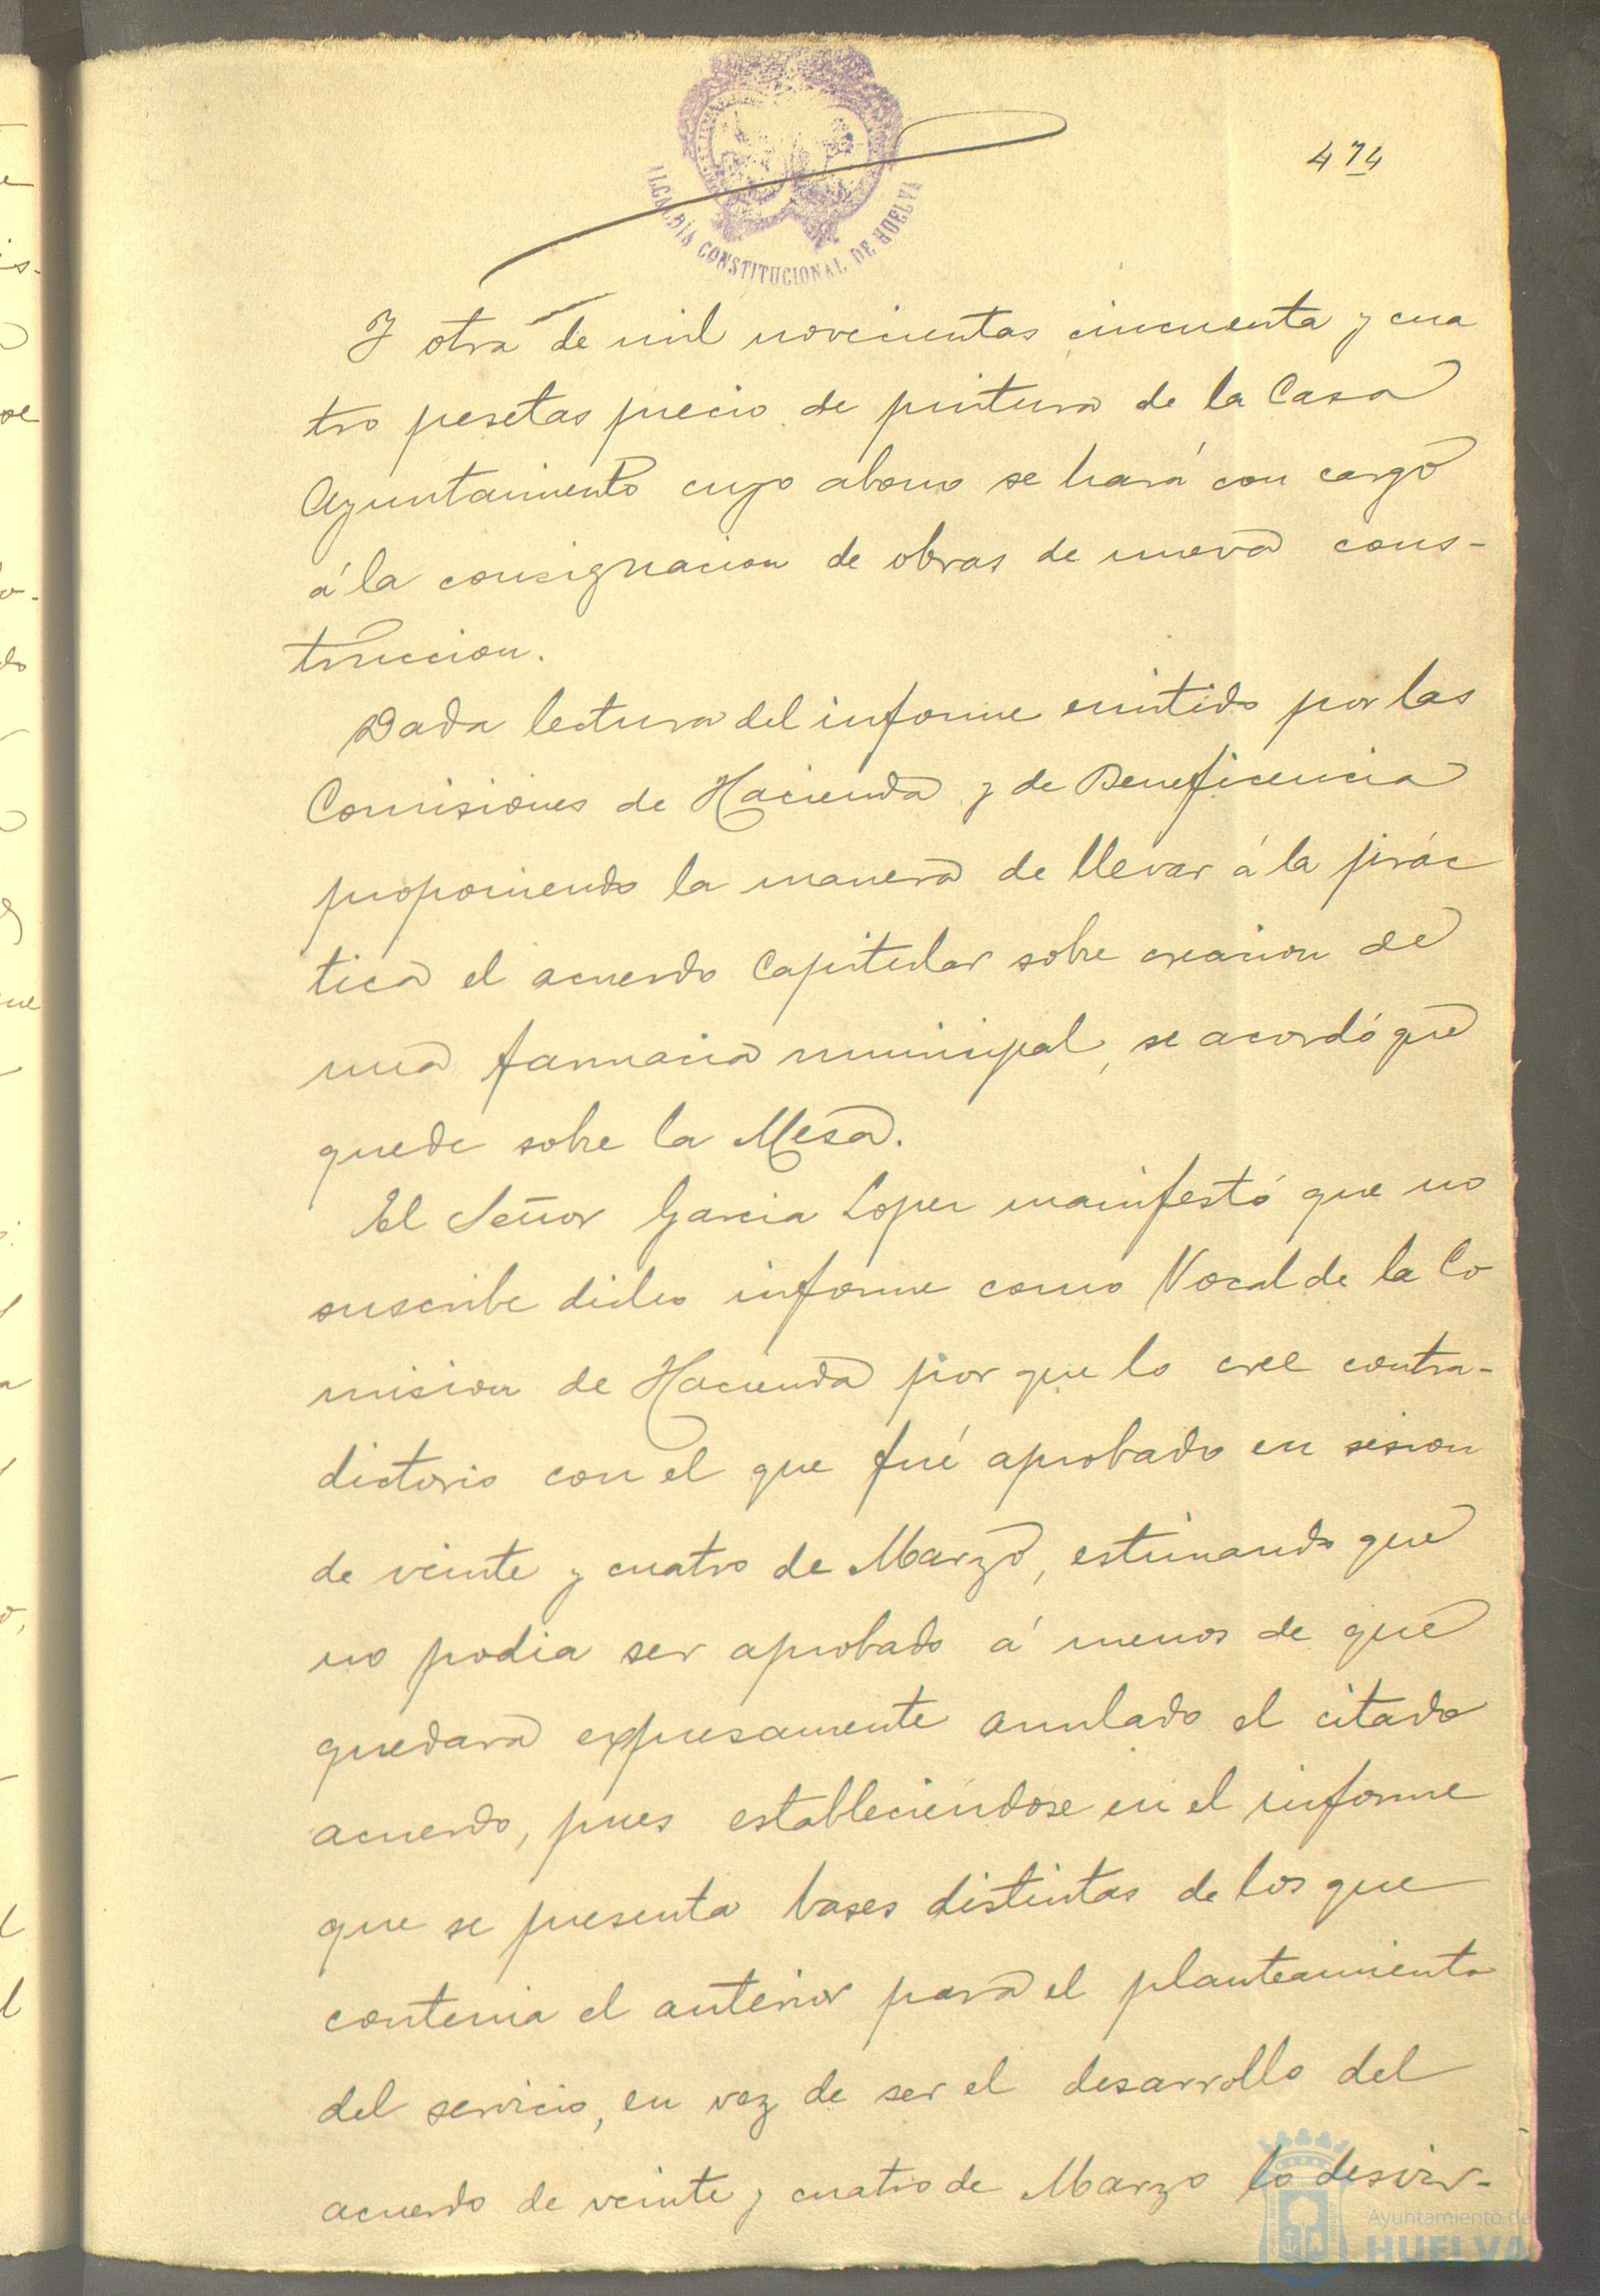 474
ALCALDÍA CONSTITUCIONAL DE HUELVA
Y otra de mil novecientas cincuenta y cua
tro pesetas precio de pintura de la Casa
Ayuntamiento cuyo abono se hará con cargo
á la consignacion de obras de nueva cons-
truccion.
Dada lectura del informe emitido por las
Comisiones de Hacienda y de Beneficencia
proponiendo la manera de llevar á la prác
tica el acuerdo Capitular sobre creacion de
una farmacia municipal, se acordó que
quede sobre la Mesa.
El Señor Garcia Lopez manifestó que no
suscribe dicho informe como Vocal de la Co
mision de Hacienda por que lo cree contra-
dictorio con el que fué aprobado en sesion
de veinte y cuatro de Marzo, estimando que
no podia ser aprobado á menos de que
quedara expresamente anulado el citado
acuerdo, pues estableciéndose en el informe
que se presenta bases distintas de los que
contenia el anterior para el planteamiento
del servicio, en vez de ser el desarrollo del
acuerdo de veinte y cuatro de Marzo lo desvir-
Ayuntamiento de
HUELVA